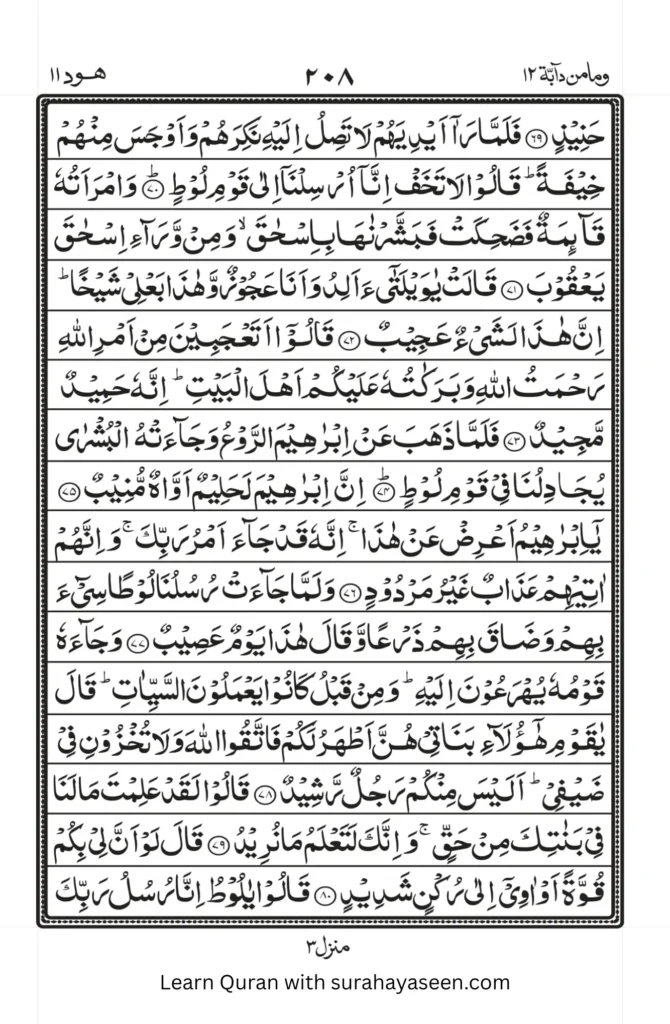 ومامن دآبۃ ١٢ ٢٠٨ ھود ١١
حَنِيْذٍ ﴿٦٩﴾ فَلَمَّا رَاٰۤ اَيْدِيَهُمْ لَا تَصِلُ اِلَيْهِ نَكِرَهُمْ وَاَوْجَسَ مِنْهُمْ
خِيْفَةً ؕ قَالُوْا لَا تَخَفْ اِنَّاۤ اُرْسِلْنَاۤ اِلٰى قَوْمِ لُوْطٍ ؕ﴿٧٠﴾ وَامْرَاَتُهٗ
قَآئِمَةٌ فَضَحِكَتْ فَبَشَّرْنٰهَا بِاِسْحٰقَ ۙ وَمِنْ وَّرَآءِ اِسْحٰقَ
يَعْقُوْبَ ﴿٧١﴾ قَالَتْ يٰوَيْلَتٰٓى ءَاَلِدُ وَاَنَا عَجُوْزٌ وَّهٰذَا بَعْلِيْ شَيْخًا ؕ
اِنَّ هٰذَا لَشَيْءٌ عَجِيْبٌ ﴿٧٢﴾ قَالُوْۤا اَتَعْجَبِيْنَ مِنْ اَمْرِ اللّٰهِ
رَحْمَتُ اللّٰهِ وَبَرَكٰتُهٗ عَلَيْكُمْ اَهْلَ الْبَيْتِ ؕ اِنَّهٗ حَمِيْدٌ
مَّجِيْدٌ ﴿٧٣﴾ فَلَمَّا ذَهَبَ عَنْ اِبْرٰهِيْمَ الرَّوْعُ وَجَآءَتْهُ الْبُشْرٰى
يُجَادِلُنَا فِيْ قَوْمِ لُوْطٍ ؕ﴿٧٤﴾ اِنَّ اِبْرٰهِيْمَ لَحَلِيْمٌ اَوَّاهٌ مُّنِيْبٌ ﴿٧٥﴾
يٰۤاِبْرٰهِيْمُ اَعْرِضْ عَنْ هٰذَا ۚ اِنَّهٗ قَدْ جَآءَ اَمْرُ رَبِّكَ ۚ وَاِنَّهُمْ
اٰتِيْهِمْ عَذَابٌ غَيْرُ مَرْدُوْدٍ ﴿٧٦﴾ وَلَمَّا جَآءَتْ رُسُلُنَا لُوْطًا سِيْٓءَ
بِهِمْ وَضَاقَ بِهِمْ ذَرْعًا وَّقَالَ هٰذَا يَوْمٌ عَصِيْبٌ ﴿٧٧﴾ وَجَآءَهٗ
قَوْمُهٗ يُهْرَعُوْنَ اِلَيْهِ ؕ وَمِنْ قَبْلُ كَانُوْا يَعْمَلُوْنَ السَّيِّاٰتِ ؕ قَالَ
يٰقَوْمِ هٰٓؤُلَآءِ بَنَاتِيْ هُنَّ اَطْهَرُ لَكُمْ فَاتَّقُوا اللّٰهَ وَلَا تُخْزُوْنِ فِيْ
ضَيْفِيْ ؕ اَلَيْسَ مِنْكُمْ رَجُلٌ رَّشِيْدٌ ﴿٧٨﴾ قَالُوْا لَقَدْ عَلِمْتَ مَا لَنَا
فِيْ بَنٰتِكَ مِنْ حَقٍّ ۚ وَاِنَّكَ لَتَعْلَمُ مَا نُرِيْدُ ﴿٧٩﴾ قَالَ لَوْ اَنَّ لِيْ بِكُمْ
قُوَّةً اَوْ اٰوِيْۤ اِلٰى رُكْنٍ شَدِيْدٍ ﴿٨٠﴾ قَالُوْا يٰلُوْطُ اِنَّا رُسُلُ رَبِّكَ
منزل ٣
Learn Quran with surahayaseen.com